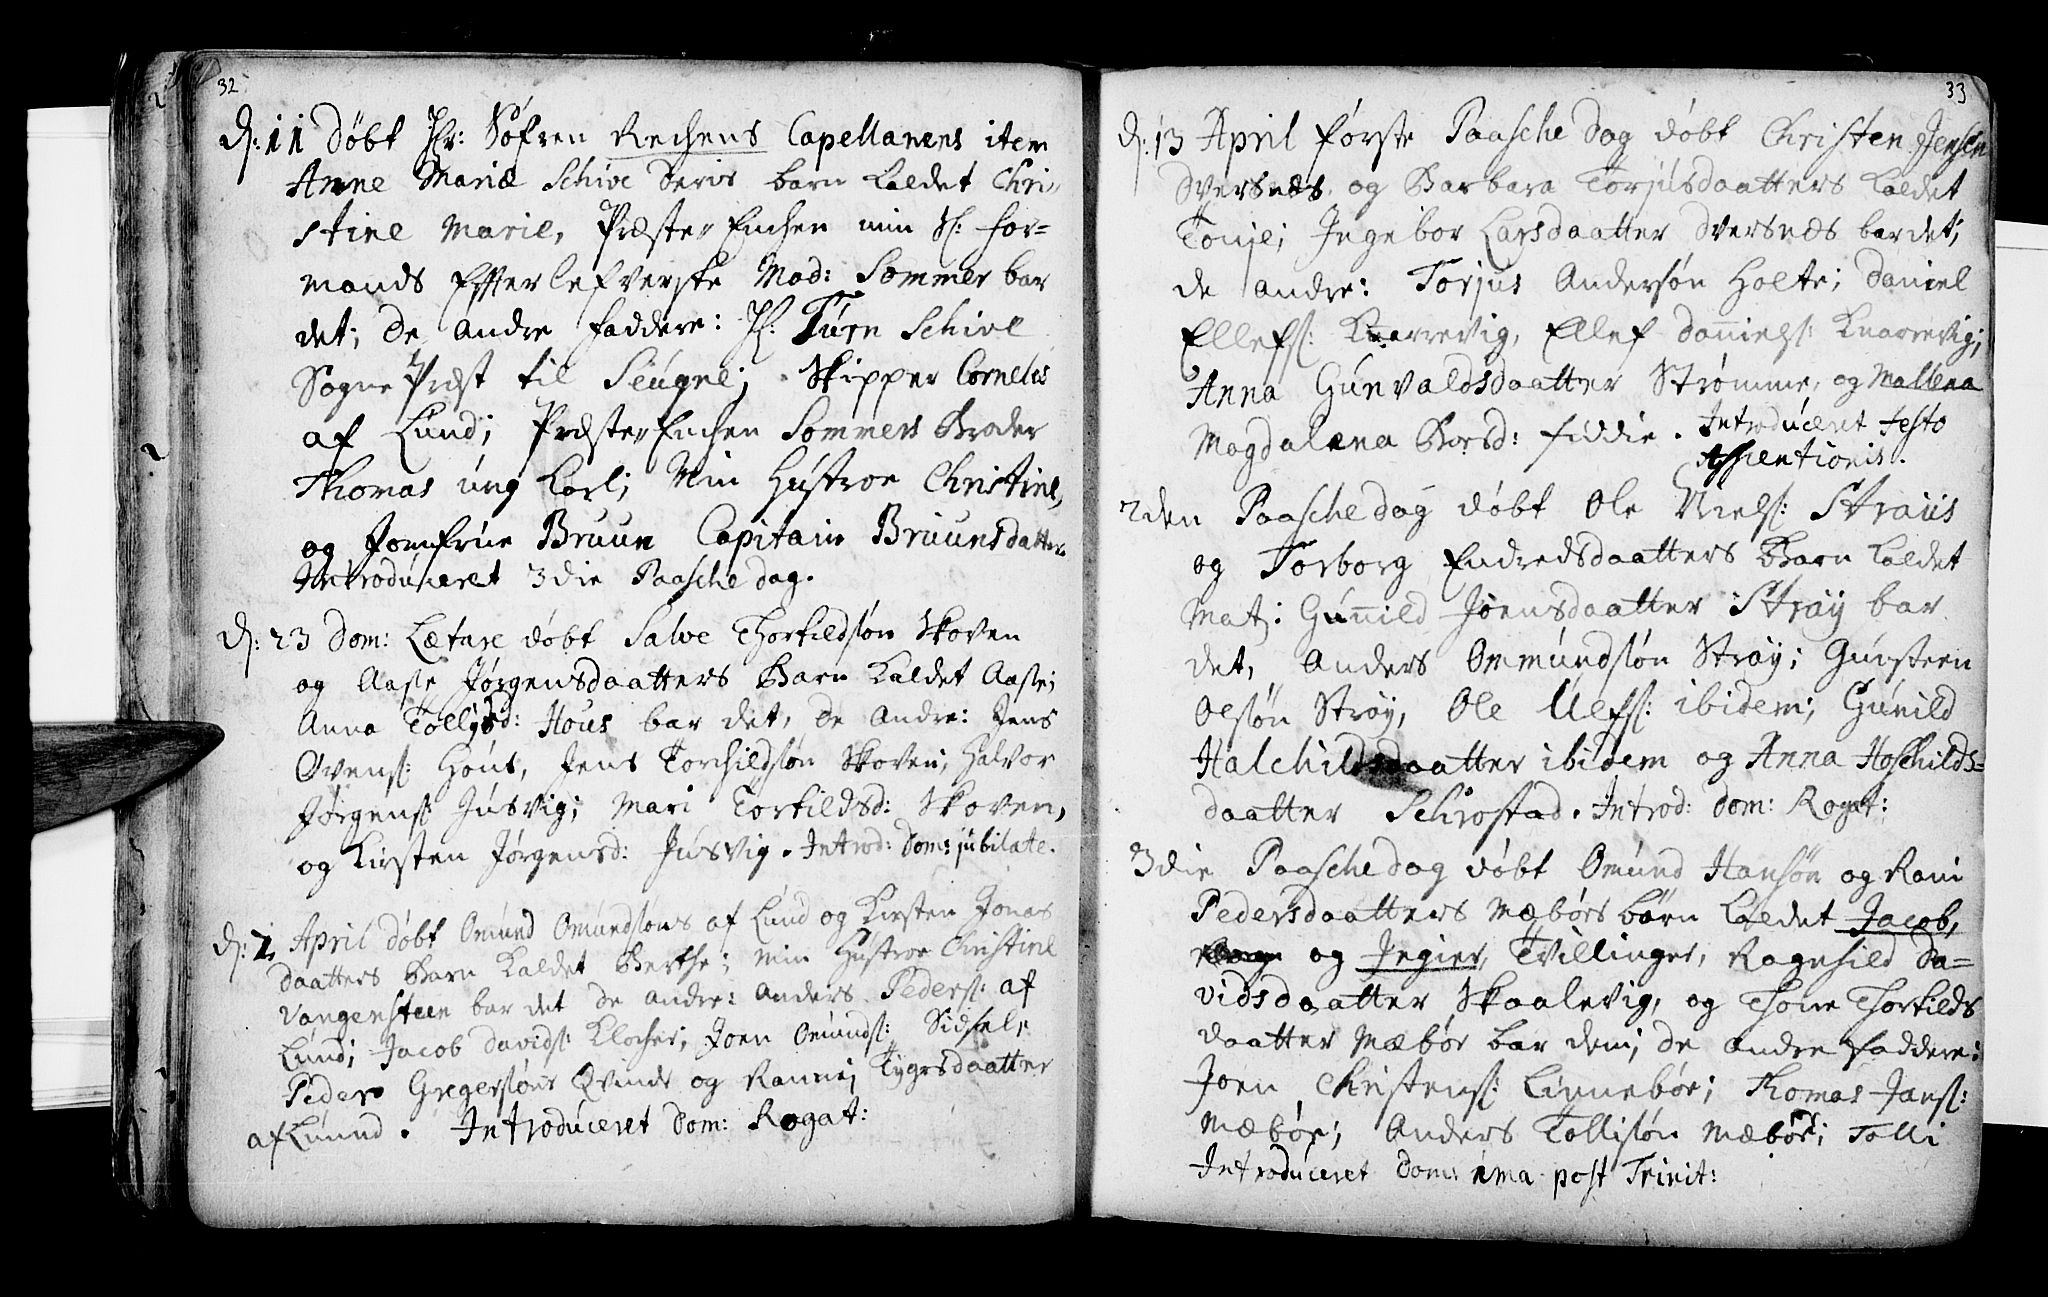 32
D: 11 Døbt Hr: Søfren Rechens Capellanens item
Anne Mariæ Schive Deris barn kaldet Chri-
stine Marie, Præste-Enchen min Sl: for-
mands Effterlefverske Mad: Sommer bar
det; de andre faddere: Hr: Turn Schive
Sogne Præst til Seugne; Skipper Cornelis
af Lund; Præste-Enchen Sommers Broder
Thomas ung Karl; Min Hustroe Christine,
og Jomfrue Bruun Capitain Bruunsdatter
Introduceret 3die Paasche dag.
D: 23 Dom: Lætare døbt Salve Thorkildsøn Skoven
og Aase Jørgensdaatters Barn kaldet Aase;
Anna Tollysd: Hous bar det, de andre: Jens
Ovens: Hous, Jens Torchildsøn Skoven, Halvor
Jørgens: Jusvig; Mari Torkildsd: Skoven,
og Kirsten Jørgensd: Jusvig. Introd: Dom: jubilate.
D: 2 April døbt Omund Omundsøns af Lund og Kirsten Jonas
daatters Barn kaldet Berthe; min Hustroe Christine
Vangensteen bar det de andre: Anders Peders: af
Lund; Jacob Davids: Klocher; Joen Omunds: Sidsel,
Peder Gregersøns Qvinde og Ranni Tygesdaatter
af Lund. Introduceret Dom: Rogat:
33
D: 13 April første Paasche dag døbt Christen Jensen
Dversnes og Barbara Torjusdaatters kaldet
Tonje; Ingebor Larsdaatter Dversnæs bar det;
de andre: Torjus Andersøn Holte; Daniel
Ellefs: Knarrevig, Ellef Daniels: Knarrevig;
Anna Gunvaldsdaatter Strømme, og Mallena
Magdalena Borsd: Fiddie. Introduceret Festo
Assentionis.
2den Paasche dag døbt Ole Niels: Straiis
og Torborg Endredsdaatters Barn kaldet
Mat: Gunild Joensdaatter Straÿ bar
det, Anders Ommundsøn Straÿ; Gunsteen
Olsøn Straÿ, Ole Ulefs: ibidem; Gunild
Halchildsdaatter ibidem og Anna Aschilds-
daatter Schrostad. Introd: Dom: Rogat:
3die Paasche dag døbt Omund Hansøn og Rani
Pedersdaatters Mæbørs børn kaldet Jacob,
og Jegier, Tvillinger, Ragnhild Da-
vidsdaatter Skaalevig, og Thone Thorkilds
daatter Mæbør bar dem; de andre Faddere:
Joen Christens: Linnebør; Thomas Jans:
Mæbør; Anders Tollisøn Mæbør; Tolli
Introduceret Dom: ima post Trinit: